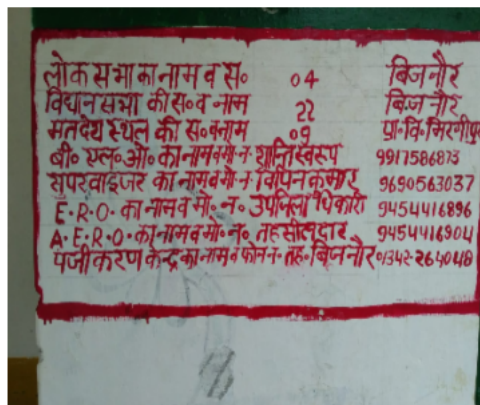 लोक सभा का नाम व सं० 04 बिजनौर
विधान सभा की सं० व नाम 22 बिजनौर
मतदेय स्थल की सं० व नाम 09 प्रा॰ वि॰
बी॰ एल॰ ओ॰ का नाम व मो॰ न॰ शान्ति स्वरूप 9917586873
सुपरवाइजर का नाम व मो॰ न॰ विपिन कुमार 9690563037
E·R·O· का नाम व मो॰ न॰ उपजिलाधिकारी 9454416896
A·E·R·O· का नाम व मो॰ न॰ तहसीलदार 9454416904
पंजीकरण केन्द्र का नाम व फोन न॰ तह॰ बिजनौर 01342-264048